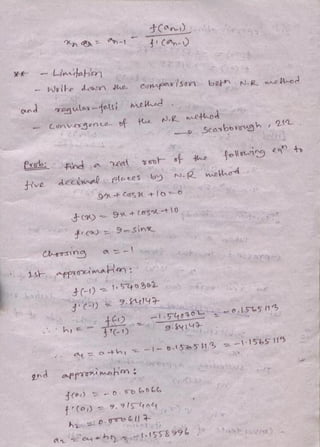 xₙ = aₙ₋₁ - f(aₙ₋₁) / f'(aₙ₋₁)
** - Limitation
- Write down the comparison betn N-R method
and regular-falsi method.
- Convergence of the N.R method
→ Scarborough, 212
Prob: Find a real root of the following eqn. to
five decimal places by N-R method
9x + cosx + 10 = 0
f(x) = 9x + cosx + 10
f'(x) = 9 - sinx
Choosing a = -1
1st. approximation:
f(-1) = 1.540302
f'(-1) = 9.84147
∴ h₁ = - f(-1) / f'(-1) = -1.540302 / 9.84147 = -0.1565113
∴ a₁ = a + h₁ = -1 - 0.1565113 = -1.1565113
2nd approximation:
f(a₁) = -0.006066
f'(a₁) = 9.9154
h₂ = 0.0006117
a₂ = a₁ + h₂ = -1.1558996